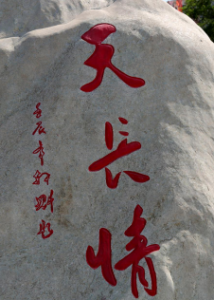 天長情
壬辰年